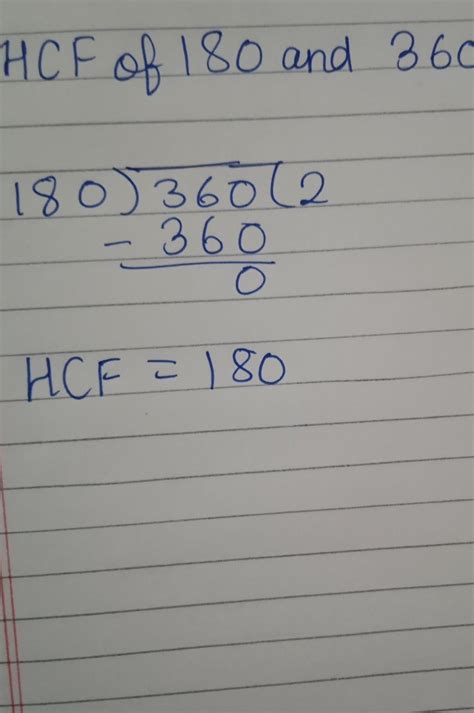 HCF of 180 and 360
180)360(2
- 360
0
HCF = 180